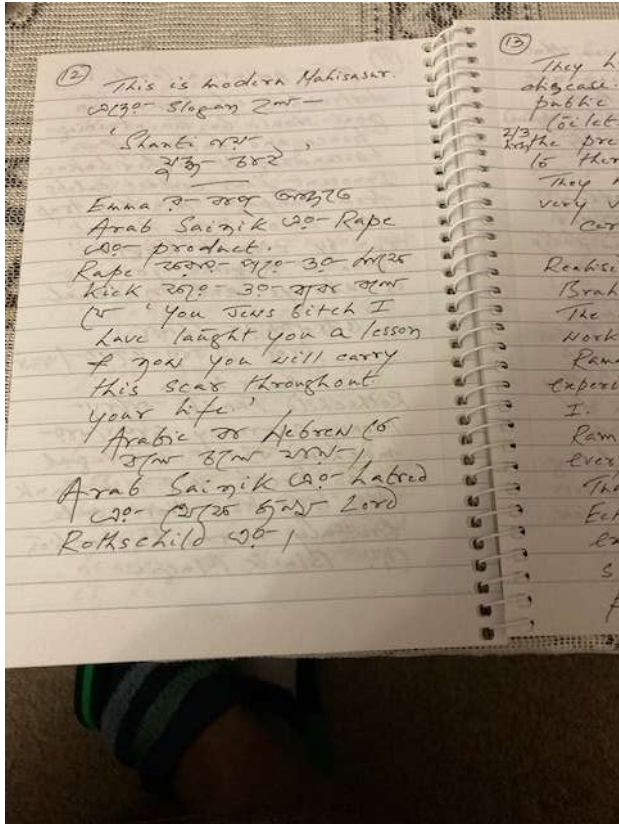 12
This is modern Mahisasur.
এদের Slogan হল —
'Shanti নয়-
যুদ্ধ চাই'
Emma র বাবা আসলে
Arab Sainik এর Rape
এর product.
Rape করার পরে ওর
Kick করে ওর বলে
যে 'You Jews bitch I
have taught you a lesson
& now you will carry
this scar throughout
your life.'
Arabic বা Hebrew তে
বলে চলে যায়।
Arab Sainik এর hatred
এর থেকে জন্ম Lord
Rothschild এর।
13
They
disgcase.
public
toilet
2/3
the pre
to ther
They
very
Realise
Brah
The
work
Rama
experi
I.
Ram
every